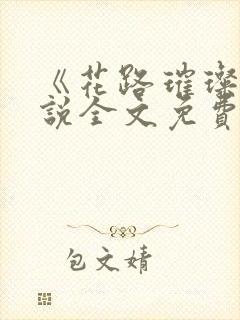 《花路璀璨
說全文免費
包文婧